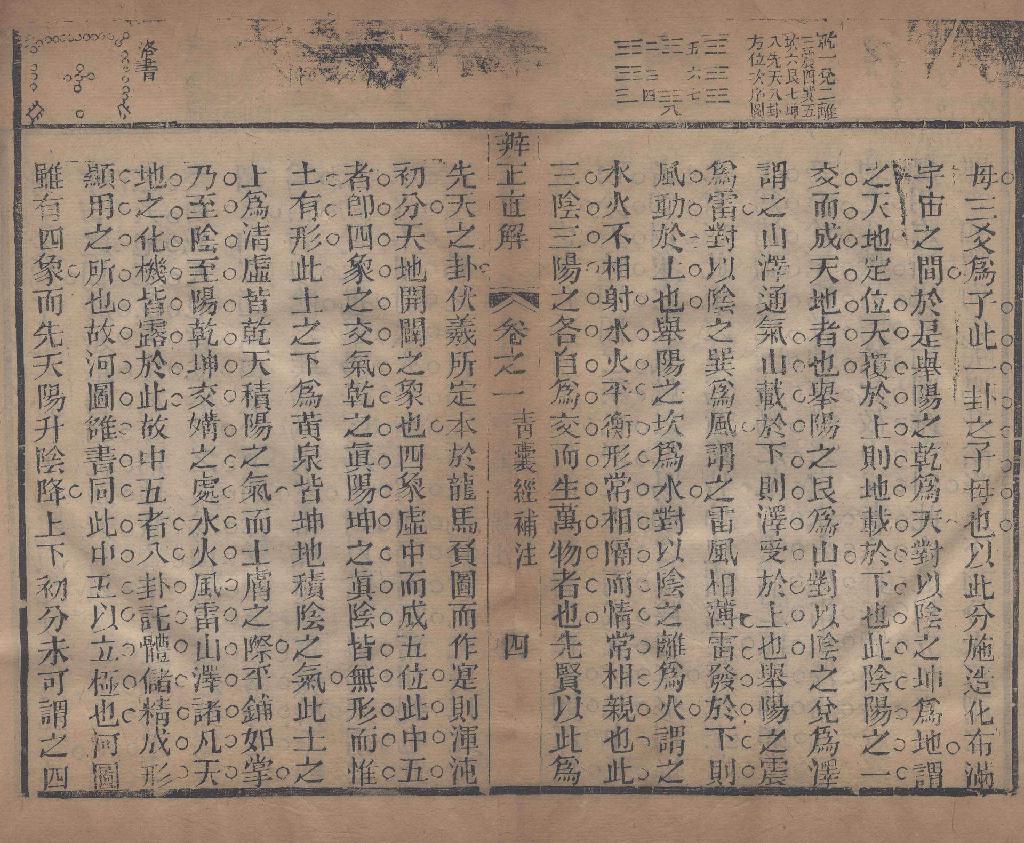 乾一兌二離
三震四巽五
坎六艮七坤
八先天八卦
方位次序圖
五六七八
二四
母三爻爲子此一卦之子母也以此分施造化布滿
宇宙之間於是舉陽之乾爲天對以陰之坤爲地謂
之天地定位天覆於上則地載於下也此陰陽之一
交而成天地者也舉陽之艮爲山對以陰之兌爲澤
謂之山澤通氣山載於下則澤受於上也舉陽之震
爲雷對以陰之巽爲風謂之雷風相薄雷發於下則
風動於上也舉陽之坎爲水對以陰之離爲火謂之
水火不相射水火平衡形常相隔而情常相親也此
三陰三陽之各自爲交而生萬物者也先賢以此爲
辨正直解 卷之一 青囊經補注 四
先天之卦伏羲所定本於龍馬負圖而作寔則渾沌
初分天地開闢之象也四象虛中而成五位此中五
者卽四象之交氣乾之眞陽坤之眞陰皆無形而惟
土有形此土之下爲黃泉皆坤地積陰之氣此土之
上爲清虛皆乾天積陽之氣而土膚之際平鋪如掌
乃至陰至陽乾坤交媾之處水火風雷山澤諸凡天
地之化機皆露於此故中五者八卦託體儲精成形
顯用之所也故河圖雒書同此中五以立極也河圖
雖有四象而先天陽升陰降上下初分未可謂之四
洛書